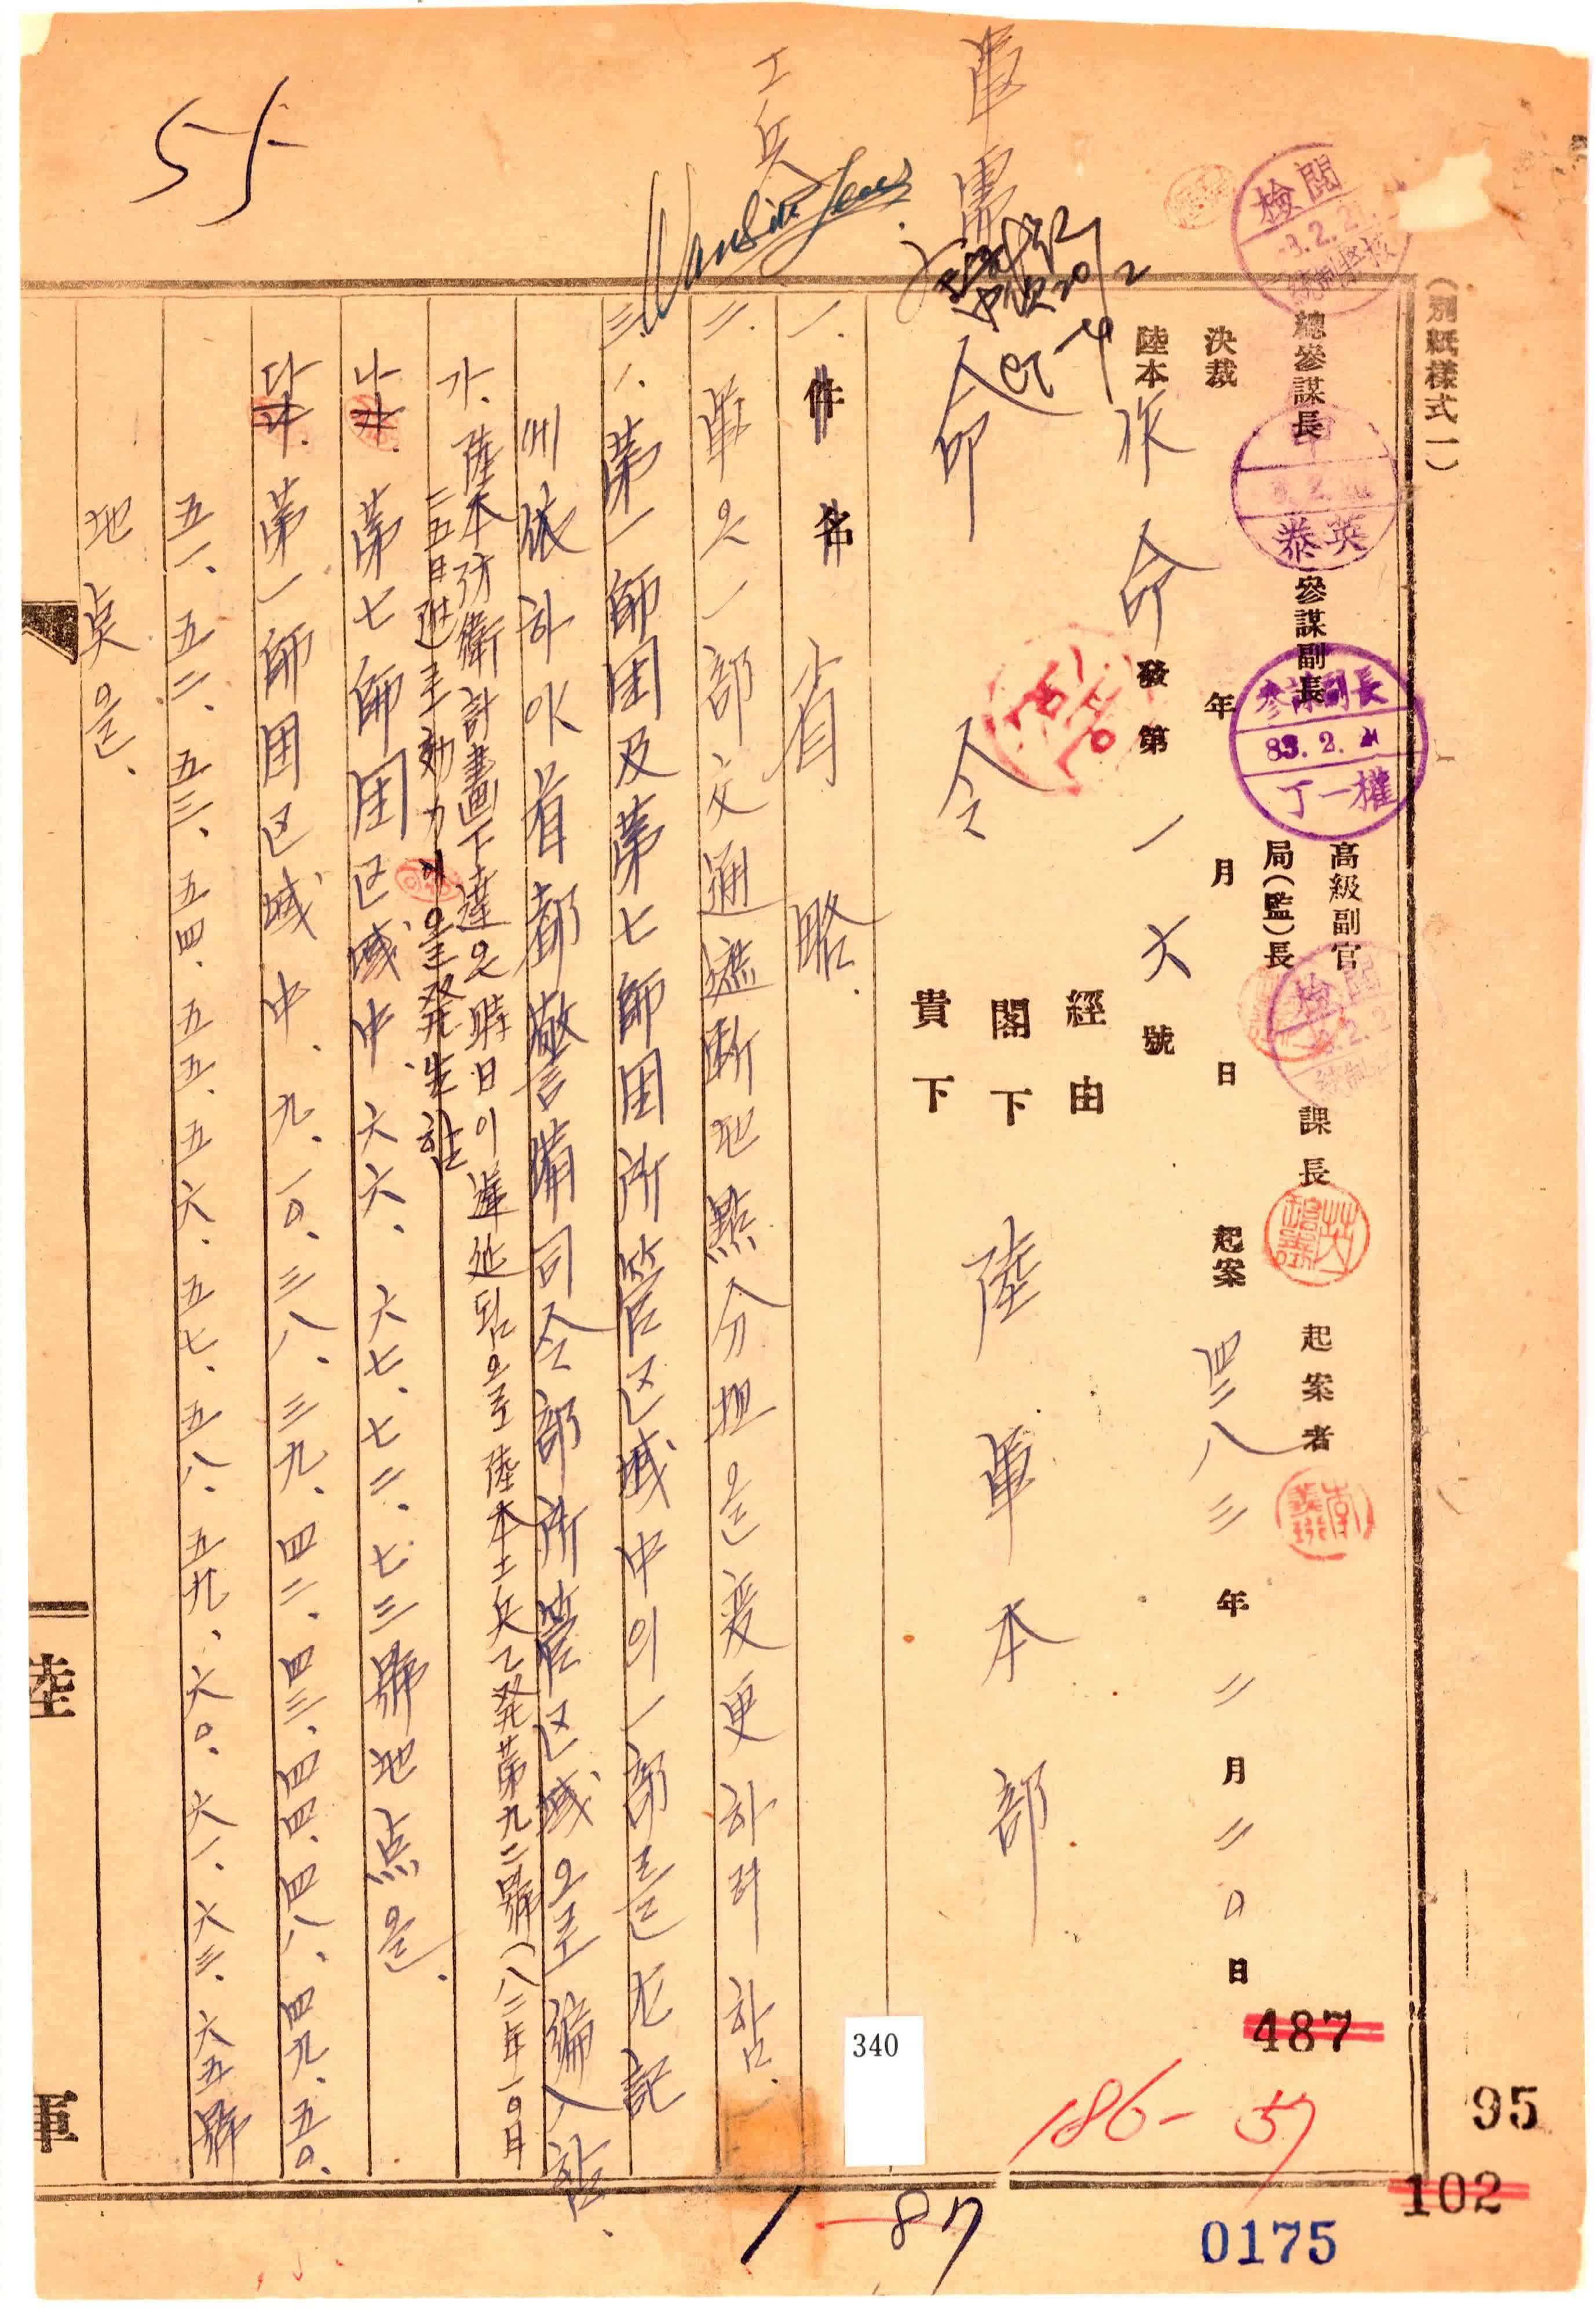 (別紙樣式一)
總參謀長 參謀副長 高級副官 局(監)長 課長 起案者
檢閱
泰英
參謀副長
83.2.21
丁一權
檢閱
決裁 年 月 日 起案 四二八三年二月二〇日
陸本 作命 發第 一六 號
經由
閣下 陸軍本部
貴下
命令
工兵
55
一. 件名 省略.
二. 軍은 一部 交通遮斷地點分担을 変更하려 함.
三. 1. 第一師団及第七師団所管区域中의 一部를 左記
에 依하야 首都警備司令部所管区域으로 編入함.
가. 陸本防衛計畫下達은 時日이 遲延됨으로 陸本工兵乙発第九二號(八二年一〇月
二五日附)로 効力이 発生함
나. 第七師団区域中. 六六. 六七. 七二. 七三號地点을.
다. 第一師団区域中. 九. 一〇. 三八. 三九. 四二. 四三. 四四. 四八. 四九. 五〇.
五一. 五二. 五三. 五四. 五五. 五六. 五七. 五八. 五九. 六〇. 六一. 六三. 六五號
地点을.
陸
軍
340
487
186-57
95
102
1-87
0175